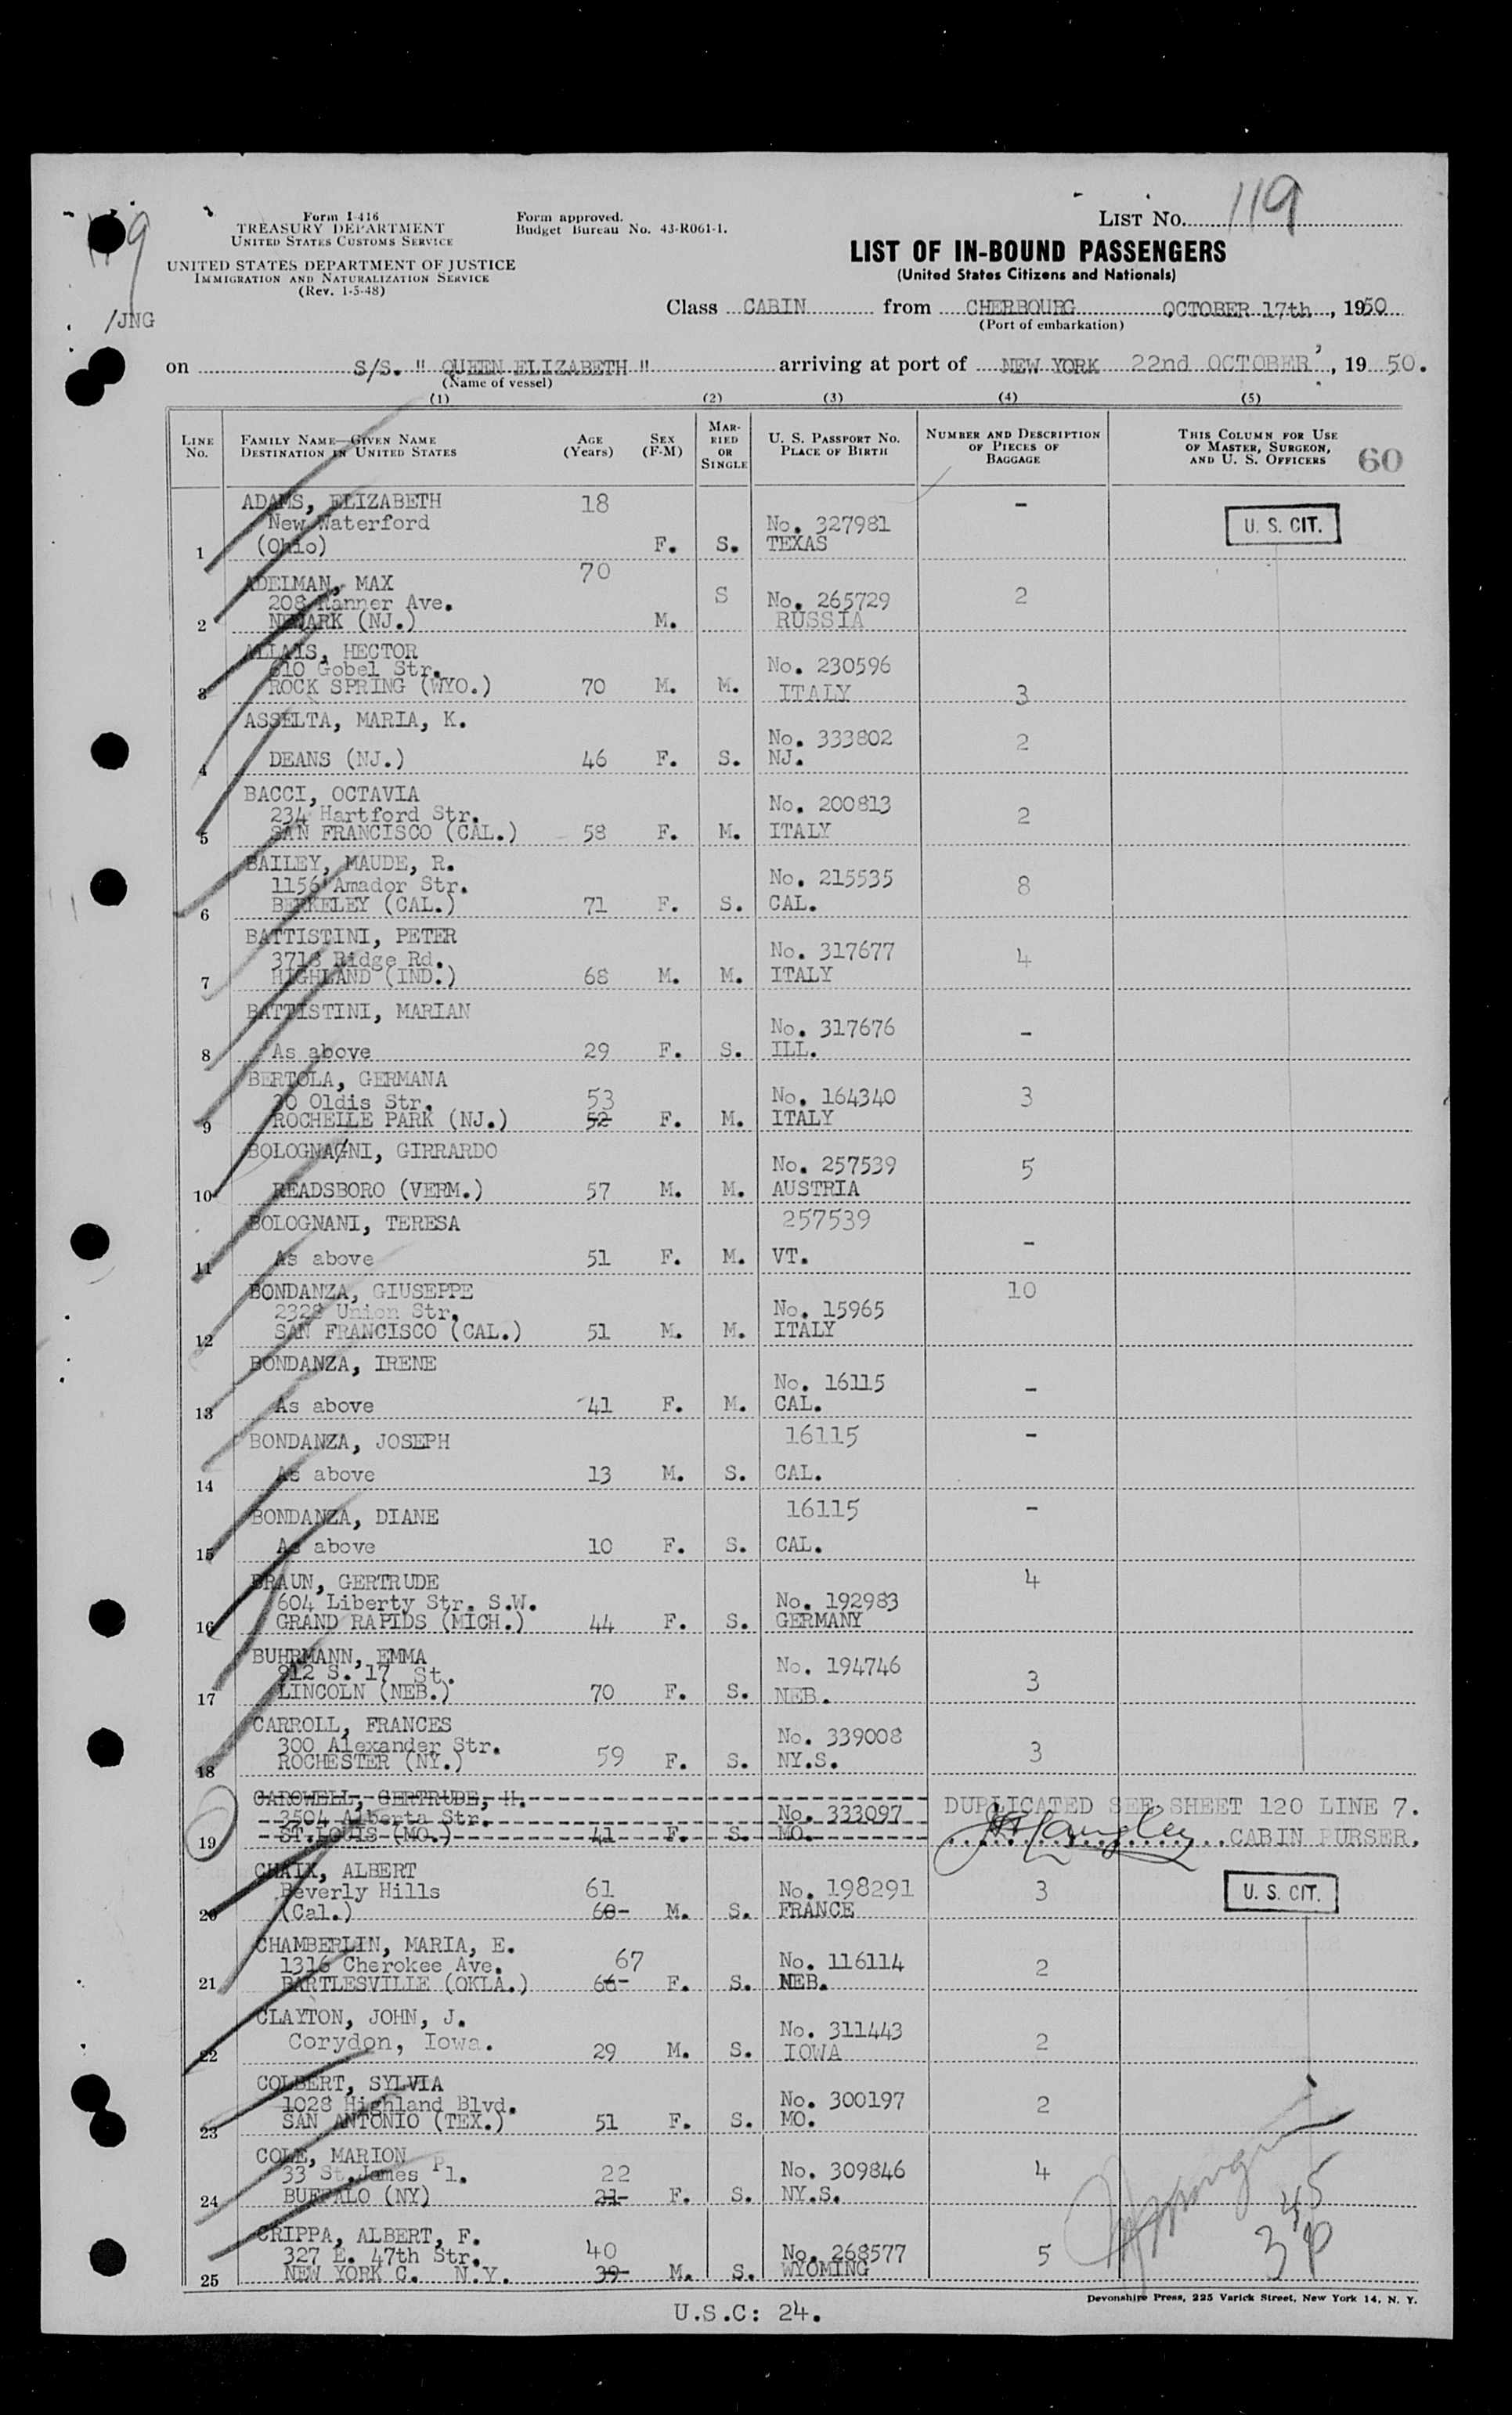 119
/JNG
Form I-416
TREASURY DEPARTMENT
UNITED STATES CUSTOMS SERVICE
UNITED STATES DEPARTMENT OF JUSTICE
IMMIGRATION AND NATURALIZATION SERVICE
(Rev. 1-5-48)
Form approved.
Budget Bureau No. 43-R061-1.
LIST NO. 119
LIST OF IN-BOUND PASSENGERS
(United States Citizens and Nationals)
Class CABIN from CHERBOURG OCTOBER 17th, 1950
(Port of embarkation)
on S/S. " QUEEN ELIZABETH " arriving at port of NEW YORK 22nd OCTOBER, 1950.
(Name of vessel)
(1) (2) (3) (4) (5)
LINE NO.
FAMILY NAME—GIVEN NAME
DESTINATION IN UNITED STATES
AGE (Years)
SEX (F-M)
MARRIED OR SINGLE
U. S. PASSPORT NO.
PLACE OF BIRTH
NUMBER AND DESCRIPTION OF PIECES OF BAGGAGE
THIS COLUMN FOR USE OF MASTER, SURGEON, AND U. S. OFFICERS
60
ADAMS, ELIZABETH 18 -
New Waterford No. 327981 U. S. CIT.
1 (Ohio) F. S. TEXAS
70
ADELMAN, MAX S
208 Ranner Ave. No. 265729 2
2 NEWARK (NJ.) M. RUSSIA
ALLAIS, HECTOR
610 Gobel Str. No. 230596
3 ROCK SPRING (WYO.) 70 M. M. ITALY 3
ASSELTA, MARIA, K.
No. 333802 2
4 DEANS (NJ.) 46 F. S. NJ.
BACCI, OCTAVIA
234 Hartford Str. No. 200813 2
5 SAN FRANCISCO (CAL.) 58 F. M. ITALY
BAILEY, MAUDE, R.
1156 Amador Str. No. 215535 8
6 BERKELEY (CAL.) 71 F. S. CAL.
BATTISTINI, PETER
3718 Ridge Rd. No. 317677 4
7 HIGHLAND (IND.) 68 M. M. ITALY
BATTISTINI, MARIAN
No. 317676 -
8 As above 29 F. S. ILL.
BERTOLA, GERMANA
30 Oldis Str. 53 No. 164340 3
9 ROCHELLE PARK (NJ.) 52 F. M. ITALY
BOLOGNAGNI, GIRRARDO
No. 257539 5
10 READSBORO (VERM.) 57 M. M. AUSTRIA
BOLOGNANI, TERESA 257539
-
11 As above 51 F. M. VT.
BONDANZA, GIUSEPPE 10
2328 Union Str. No. 15965
12 SAN FRANCISCO (CAL.) 51 M. M. ITALY
BONDANZA, IRENE
No. 16115 -
13 As above 41 F. M. CAL.
BONDANZA, JOSEPH 16115 -
14 As above 13 M. S. CAL.
BONDANZA, DIANE 16115 -
15 As above 10 F. S. CAL.
BRAUN, GERTRUDE 4
604 Liberty Str. S.W. No. 192983
16 GRAND RAPIDS (MICH.) 44 F. S. GERMANY
BUHRMANN, EMMA
912 S. 17 St. No. 194746 3
17 LINCOLN (NEB.) 70 F. S. NEB.
CARROLL, FRANCES
300 Alexander Str. No. 339008 3
18 ROCHESTER (NY.) 59 F. S. NY.S.
CAROWELL, GERTRUDE, H. DUPLICATED SEE SHEET 120 LINE 7.
3504 Alberta Str. No. 333097
19 ST.LOUIS (MO.) 41 F. S. MO. CABIN PURSER.
CHAIX, ALBERT
Beverly Hills 61 No. 198291 3 U. S. CIT.
20 (Cal.) 60 M. S. FRANCE
CHAMBERLIN, MARIA, E.
1316 Cherokee Ave. 67 No. 116114 2
21 BARTLESVILLE (OKLA.) 66 F. S. NEB.
CLAYTON, JOHN, J.
Corydon, Iowa. No. 311443 2
22 29 M. S. IOWA
COLBERT, SYLVIA
1028 Highland Blvd. No. 300197 2
23 SAN ANTONIO (TEX.) 51 F. S. MO.
COLE, MARION
33 St.James Pl. 22 No. 309846 4
24 BUFFALO (NY) 21 F. S. NY.S.
CRIPPA, ALBERT, F.
327 E. 47th Str. 40 No. 268577 5
25 NEW YORK C. N.Y. 39 M. S. WYOMING
Devonshire Press, 225 Varick Street, New York 14, N. Y.
U.S.C: 24.